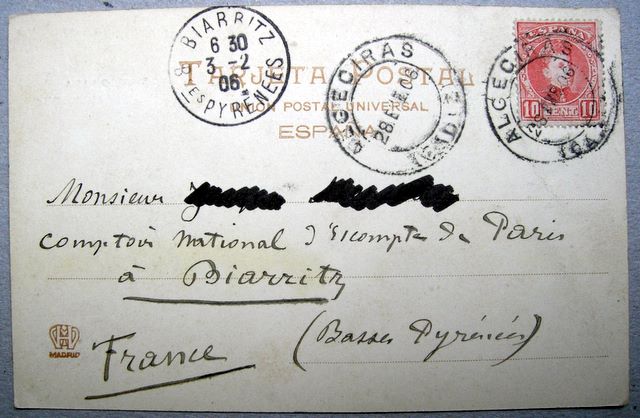 BIARRITZ
6 30
3-2
06
Bses PYRÉNÉES
TARJETA POSTAL
UNIÓN POSTAL UNIVERSAL
ESPAÑA
ALGECIRAS
28 ENE 06
(CADIZ)
ALGECIRAS
28 06
(CA
10 CENT. 10
Monsieur
Comptoir National d'Escompte de Paris
à Biarritz
(Basses Pyrénées)
France
MADRID